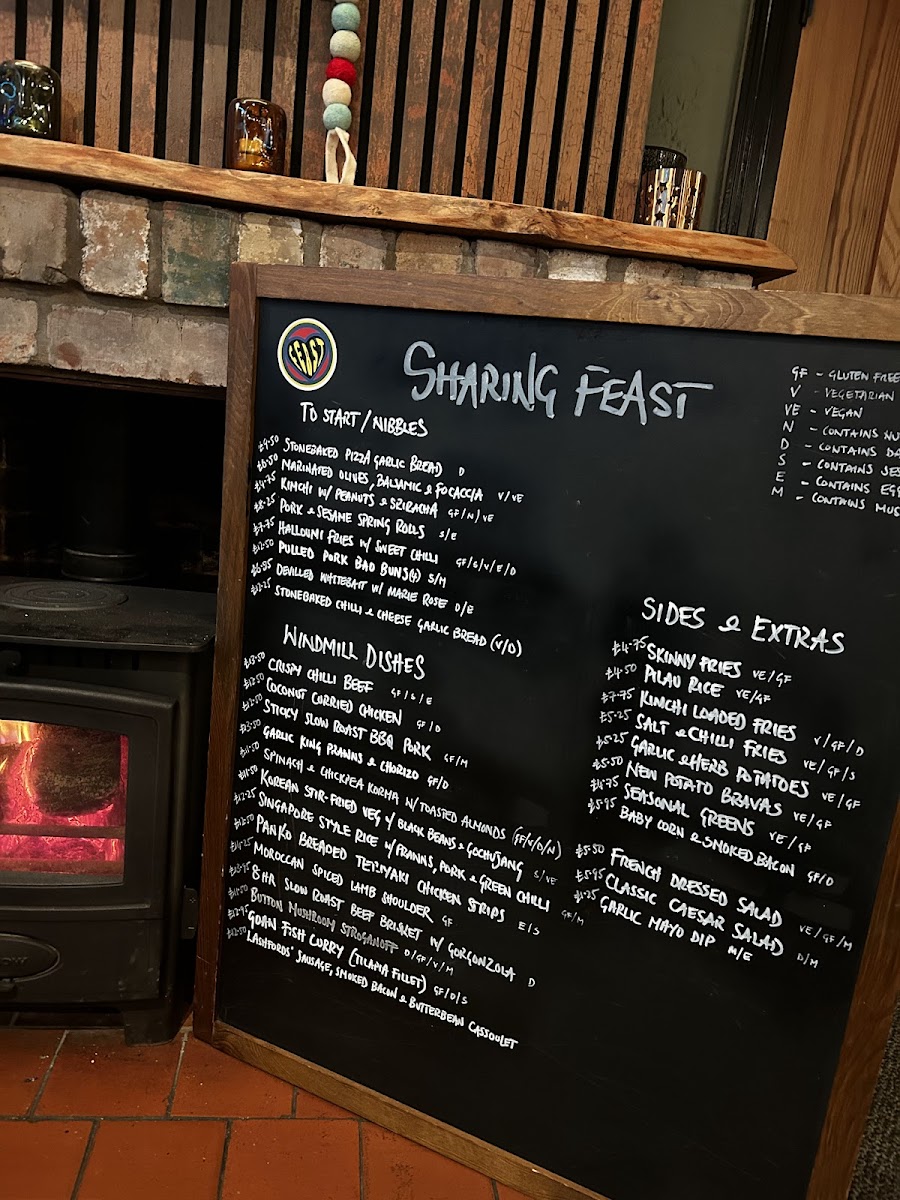 FEAST
SHARING FEAST
GF - GLUTEN FREE
V - VEGETARIAN
VE - VEGAN
N - CONTAINS NU
D - CONTAINS DA
S - CONTAINS SES
E - CONTAINS EGG
M - CONTAINS MUS
TO START / NIBBLES
£9.50 STONEBAKED PIZZA GARLIC BREAD D
£6.50 MARINATED OLIVES, BALSAMIC & FOCACCIA V/VE
£4.75 KIMCHI W/ PEANUTS & SRIRACHA GF/N/VE
£8.25 PORK & SESAME SPRING ROLLS S/E
£7.75 HALLOUMI FRIES W/ SWEET CHILLI GF/S/V/E/D
£12.50 PULLED PORK BAO BUNS(4) S/M
£6.95 DEVILLED WHITEBAIT W/ MARIE ROSE D/E
£12.25 STONEBAKED CHILLI & CHEESE GARLIC BREAD (V/D)
WINDMILL DISHES
£13.50 CRISPY CHILLI BEEF GF/S/E
£12.50 COCONUT CURRIED CHICKEN GF/D
£12.50 STICKY SLOW ROAST BBQ PORK GF/M
£13.50 GARLIC KING PRAWNS & CHORIZO GF/D
£11.50 SPINACH & CHICKPEA KORMA W/ TOASTED ALMONDS (GF/V/D/N)
£11.50 KOREAN STIR-FRIED VEG W/ BLACK BEANS & GOCHUJANG S/VE
£12.25 SINGAPORE STYLE RICE W/ PRAWNS, PORK & GREEN CHILLI GF/M
£12.50 PANKO BREADED TERIYAKI CHICKEN STRIPS E/S
MOROCCAN SPICED LAMB SHOULDER GF
8HR SLOW ROAST BEEF BRISKET W/ GORGONZOLA D
£11.50 BUTTON MUSHROOM STROGANOFF D/GF/V/M
£12.95 GOAN FISH CURRY (TILAPIA FILLET) GF/D/S
£12.50 LASHFORDS' SAUSAGE, SMOKED BACON & BUTTERBEAN CASSOULET
SIDES & EXTRAS
£4.75 SKINNY FRIES VE/GF
£4.50 PILAU RICE VE/GF
£7.75 KIMCHI LOADED FRIES V/GF/D
£5.25 SALT & CHILLI FRIES VE/GF/S
£5.25 GARLIC & HERB POTATOES VE/GF
£5.50 NEW POTATO BRAVAS VE/GF
£4.75 SEASONAL GREENS VE/GF
£5.95 BABY CORN & SMOKED BACON GF/D
£5.50 FRENCH DRESSED SALAD VE/GF/M
£5.95 CLASSIC CAESAR SALAD D/M
£1.25 GARLIC MAYO DIP M/E